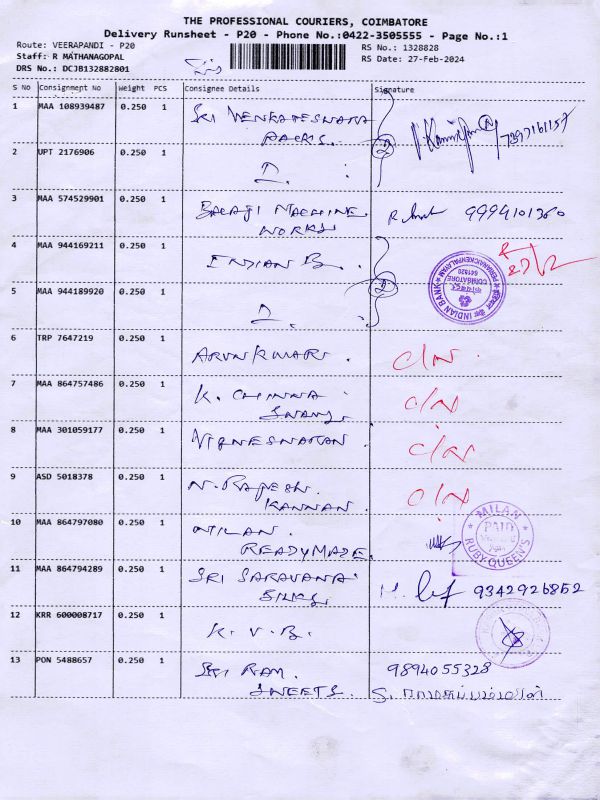 THE PROFESSIONAL COURIERS, COIMBATORE
Delivery Runsheet - P20 - Phone No.:0422-3505555 - Page No.:1
Route: VEERAPANDI - P20
RS No.: 1328828
Staff: R MATHANAGOPAL
RS Date: 27-Feb-2024
DRS No.: DCJB132882801
S No Consignment No Weight PCS Consignee Details Signature
1 MAA 108939487 0.250 1 SRI VENKATESWARA 7397161157
PACKS.
2 UPT 2176906 0.250 1 D. 2
3 MAA 574529901 0.250 1 BALAJI MACHINE 9994101360
WORKS
4 MAA 944169211 0.250 1 INDIAN B. INDIAN BANK COIMBATORE 641020
5 MAA 944189920 0.250 1 D.
6 TRP 7647219 0.250 1 ARUNKUMAR. C/N.
7 MAA 864757486 0.250 1 K. CHINNA C/N
SWAMY.
8 MAA 301059177 0.250 1 VIGNESWARAN. C/N
9 ASD 5018378 0.250 1 N. RAJESH. C/N
KANNAN.
10 MAA 864797080 0.250 1 MILAN. MILAN PAID RUBY QUEEN'S
READYMADE.
11 MAA 864794289 0.250 1 SRI SARAVANA 9342926852
SILKS.
12 KRR 600008717 0.250 1 K. V. B.
13 PON 5488657 0.250 1 SRI RAM. 9894055328
SWEETS.